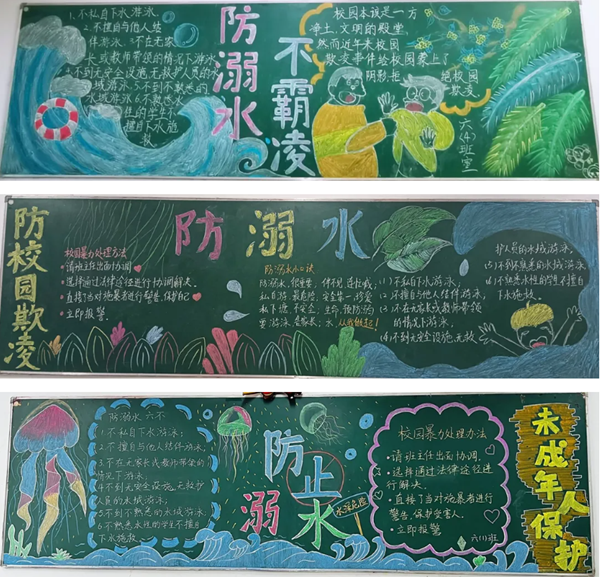 1、不私自下水游泳
2、不擅自与他人结
伴游泳 3、不在无家
长或教师带领的情况下游泳
4、不到无安全设施、无救护人员的水
域游泳 5、不到不熟悉的
水域游泳 6、不熟悉水
性的学生不
擅自下水施
救
防溺水
不霸凌
校园本该是一方
净土,文明的殿堂
然而近年来校园
欺凌事件给校园蒙上了
阴影,拒绝校园
欺凌
六(4)班宣
防校园欺凌
防溺水
校园暴力处理方法
请班主任出面协调
选择通过法律途径进行协调解决。
直接了当对施暴者进行警告,保护自己
立即报警
防溺水小口诀
防溺水,很重要,
私自游,最危险,安全第一,珍爱
要游泳,
水,从我做起!
(1)不私自下水游泳,
(2)不擅自与他人结伴游泳,
(3)不在无家长或教师带领
的情况下游泳。
(4)不到无安全设施、无救
护人员的水域游泳
(5)不到不熟悉的水域游泳
(6)不熟悉水性的学生不擅自
下水施救。
防溺水 六不
1.不私自下水游泳;
2.不擅自与他人结伴游泳;
3.不在无家长或教师带领的
情况下游泳;
4.不到无安全设施、无救护
人员的水域游泳;
5.不到不熟悉的水域游泳
6.不熟悉水性的学生不擅自
下水施救
防溺水
止
水深危险
校园暴力处理办法
请班主任出面协调.
选择通过法律途径
进行解决.
直接了当对施暴者进行
警告,保护受害人.
立即报警
六(1)班
未成年人保护